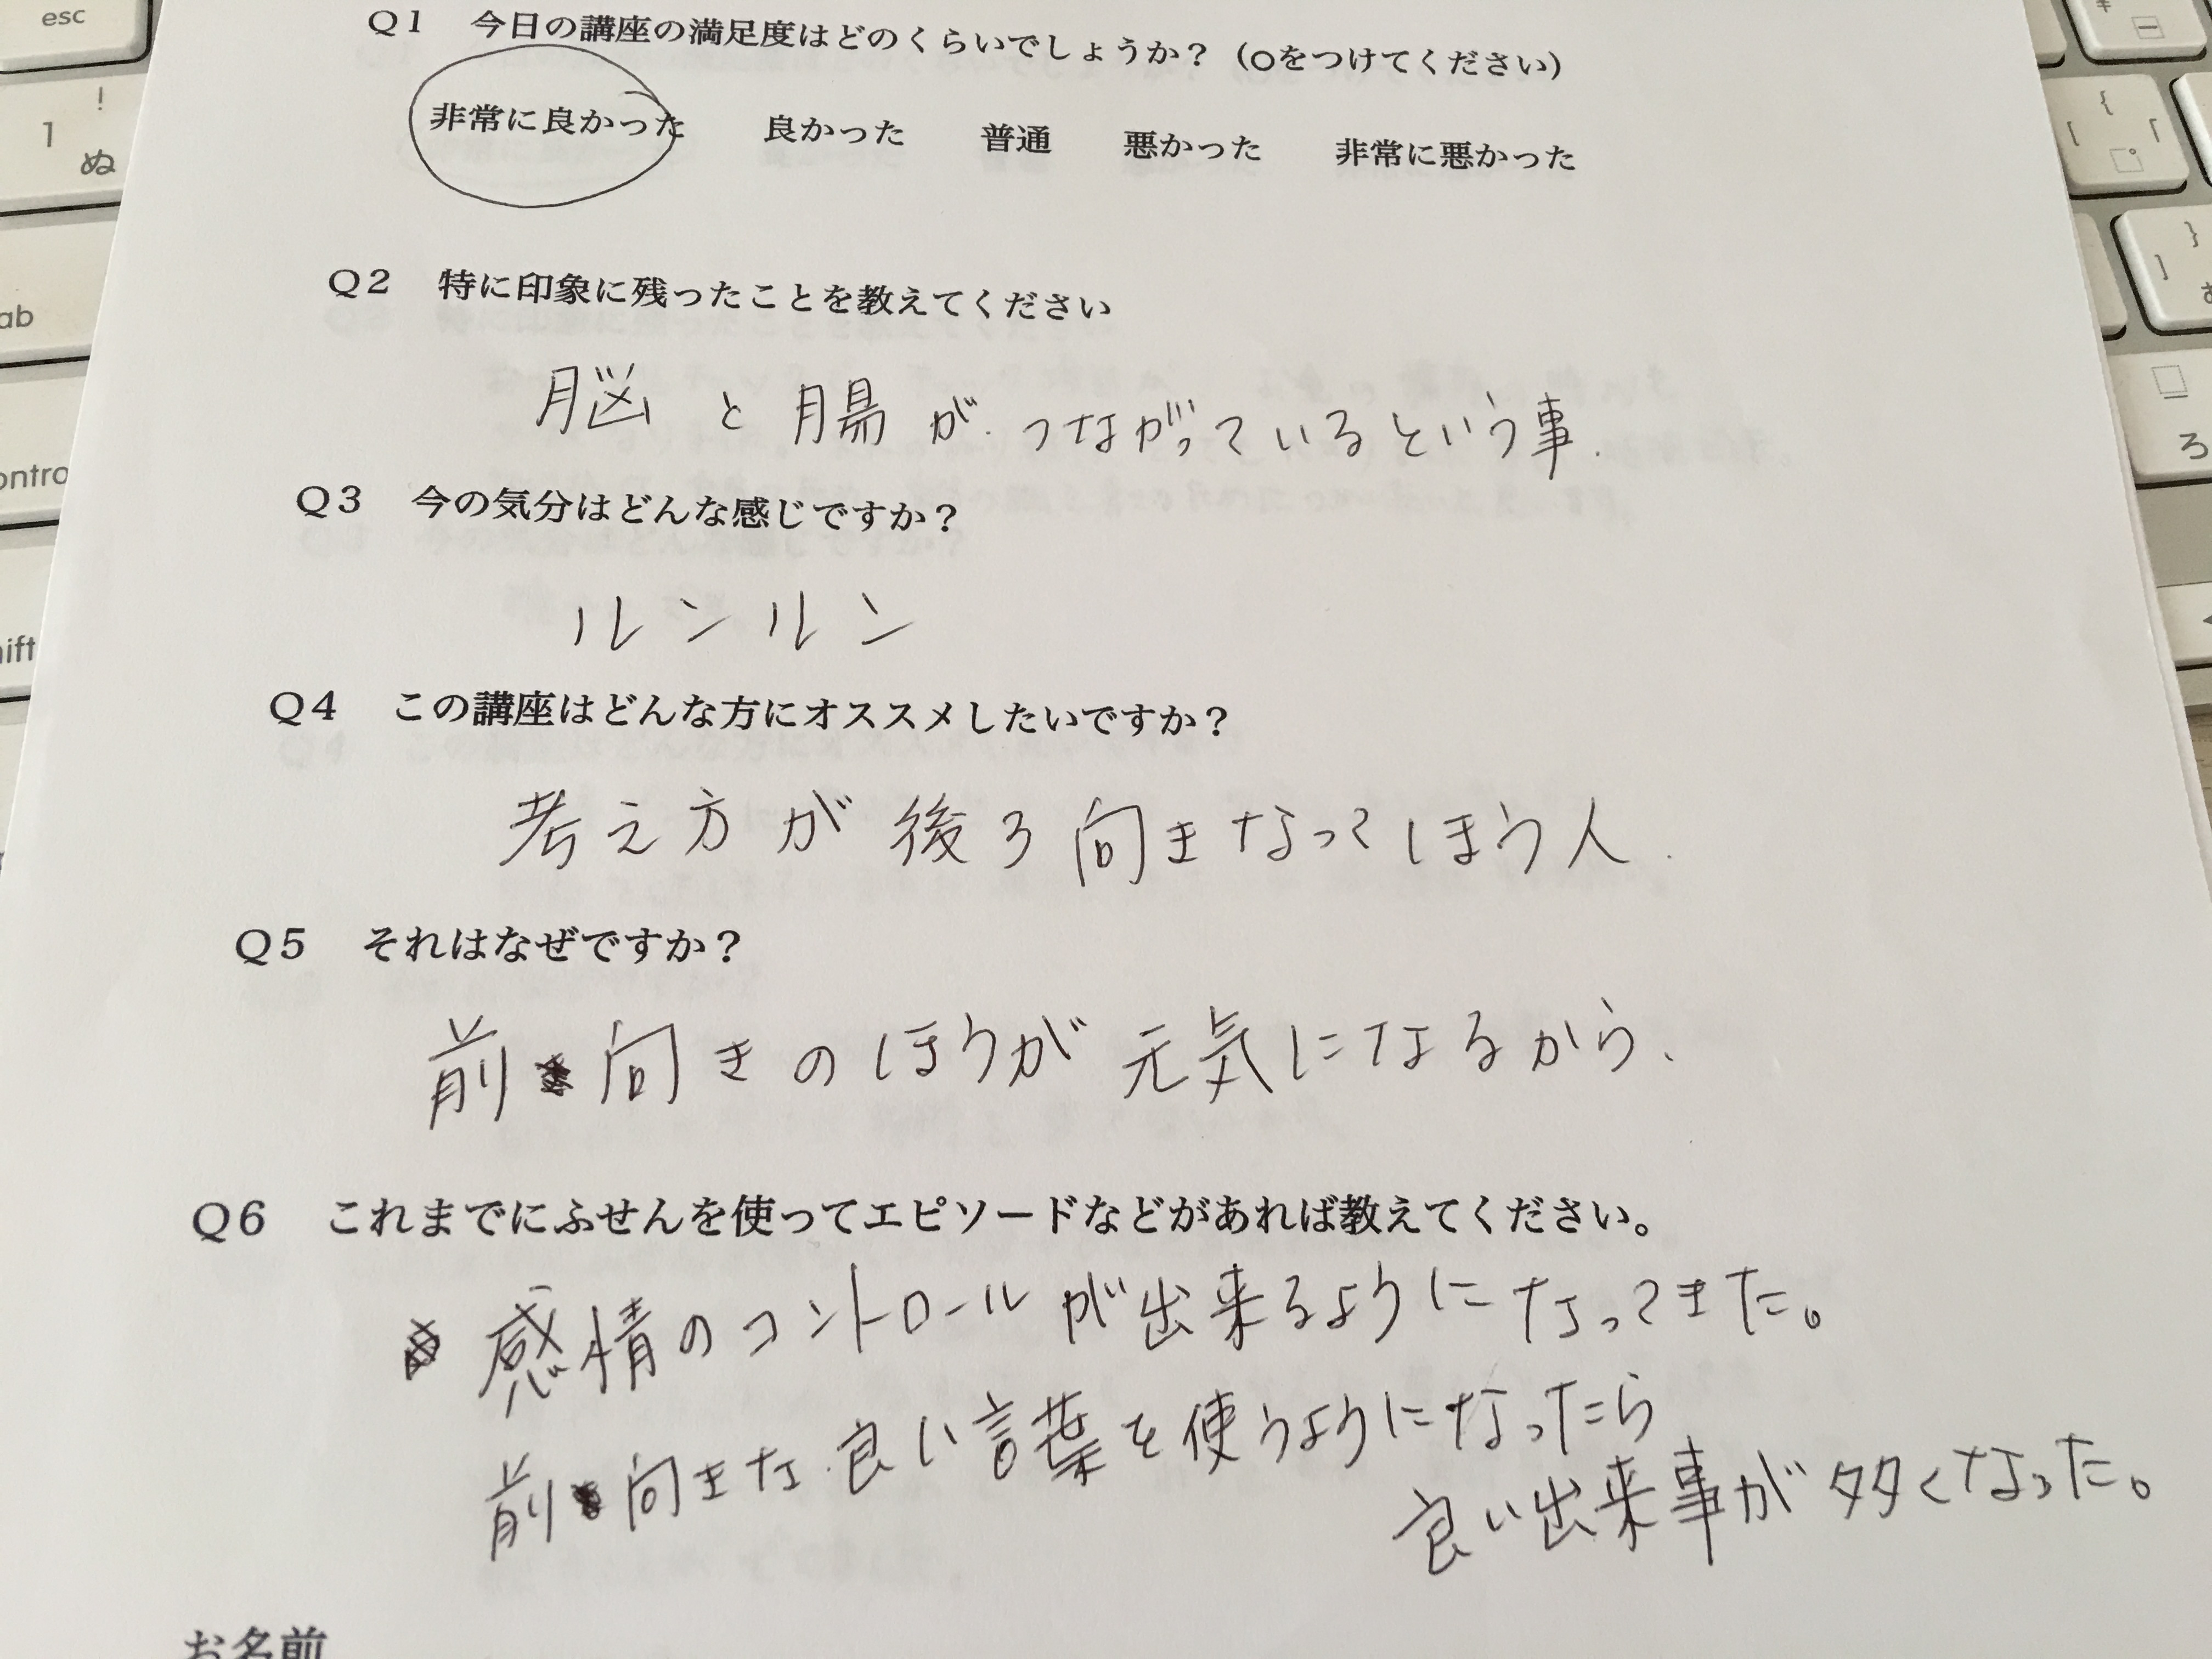 Q1 今日の講座の満足度はどのくらいでしょうか？（○をつけてください）
非常に良かった 良かった 普通 悪かった 非常に悪かった
Q2 特に印象に残ったことを教えてください
脳と腸が、つながっているという事.
Q3 今の気分はどんな感じですか？
ルンルン
Q4 この講座はどんな方にオススメしたいですか？
考え方が後ろ向きなってしほう人.
Q5 それはなぜですか？
前向きのほうが元気になるから、
Q6 これまでにふせんを使ってエピソードなどがあれば教えてください。
感情のコントロールが出来るようになってきた。
前向きな良い言葉を使うようになったら
良い出来事が多くなった。
お名前
esc
!
1 ぬ
ab
ontro
hift
¥
{
[ 「
゜
}
]
ろ